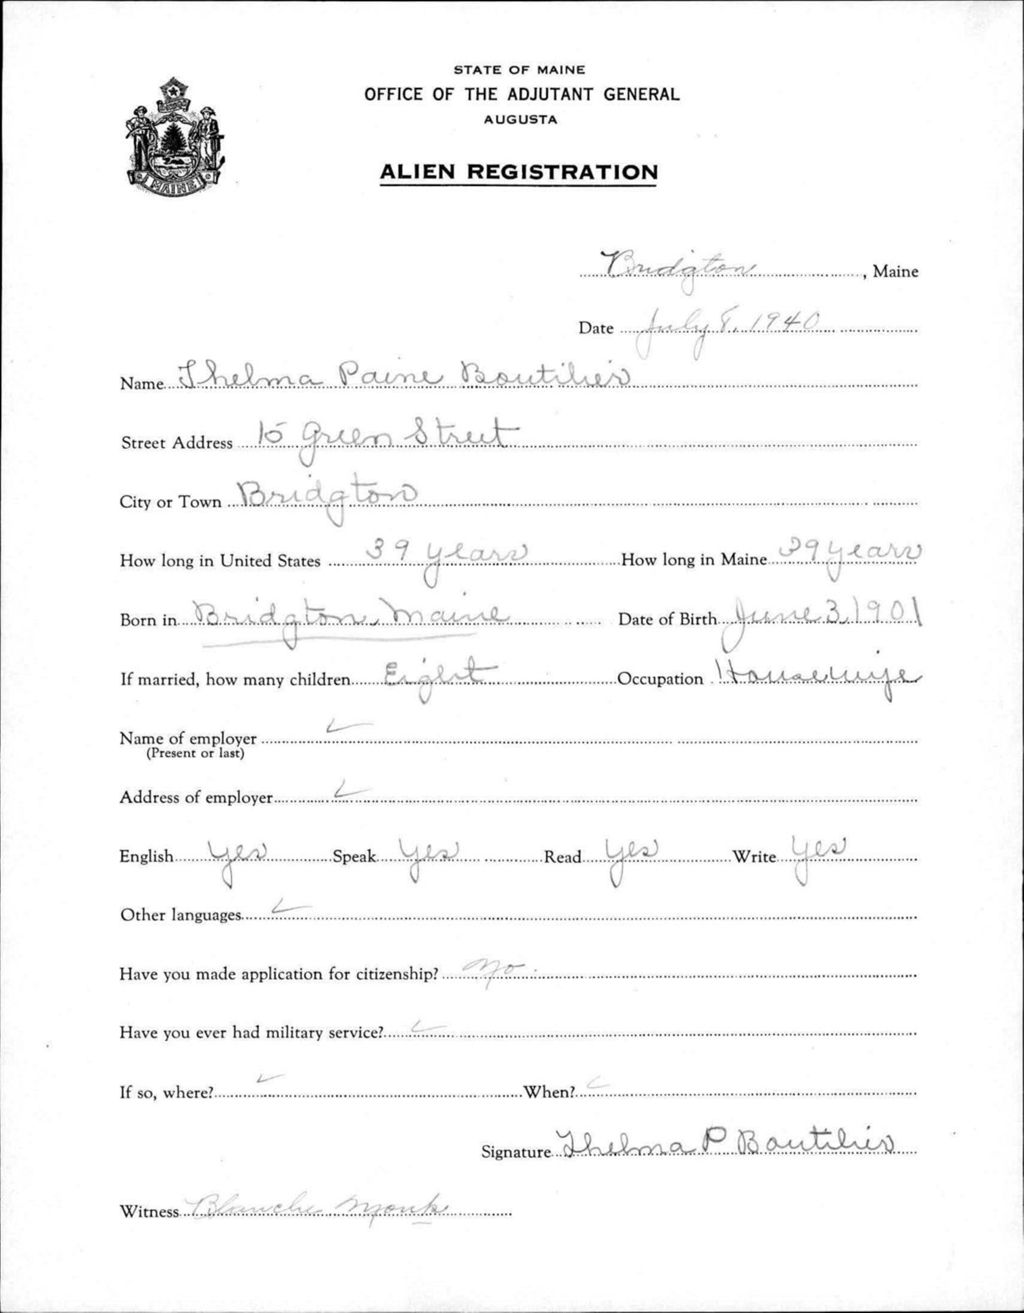 STATE OF MAINE
OFFICE OF THE ADJUTANT GENERAL
AUGUSTA
ALIEN REGISTRATION
MAINE
Bridgton, Maine
Date July 8, 1940
Name Thelma Paine Boutilier
Street Address 15 Green Street
City or Town Bridgton
How long in United States 39 years How long in Maine 39 years
Born in Bridgton, Maine Date of Birth June 3, 1901
If married, how many children Eight Occupation Housewife
Name of employer
(Present or last)
Address of employer
English Yes Speak Yes Read Yes Write Yes
Other languages
Have you made application for citizenship? No
Have you ever had military service?
If so, where? When?
Signature Thelma P Boutilier
Witness Blanche Monk